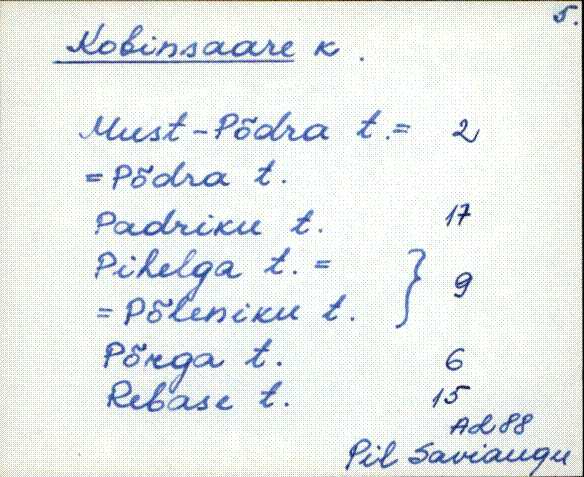 5.
Kobinsaare k.
Must-Põdra t.= 2
=Põdra t.
Padriku t. 17
Pihelga t. =
= Põleniku t. } 9
Põrga t. 6
Rebase t. 15
AL 88
Pil Saviaugu